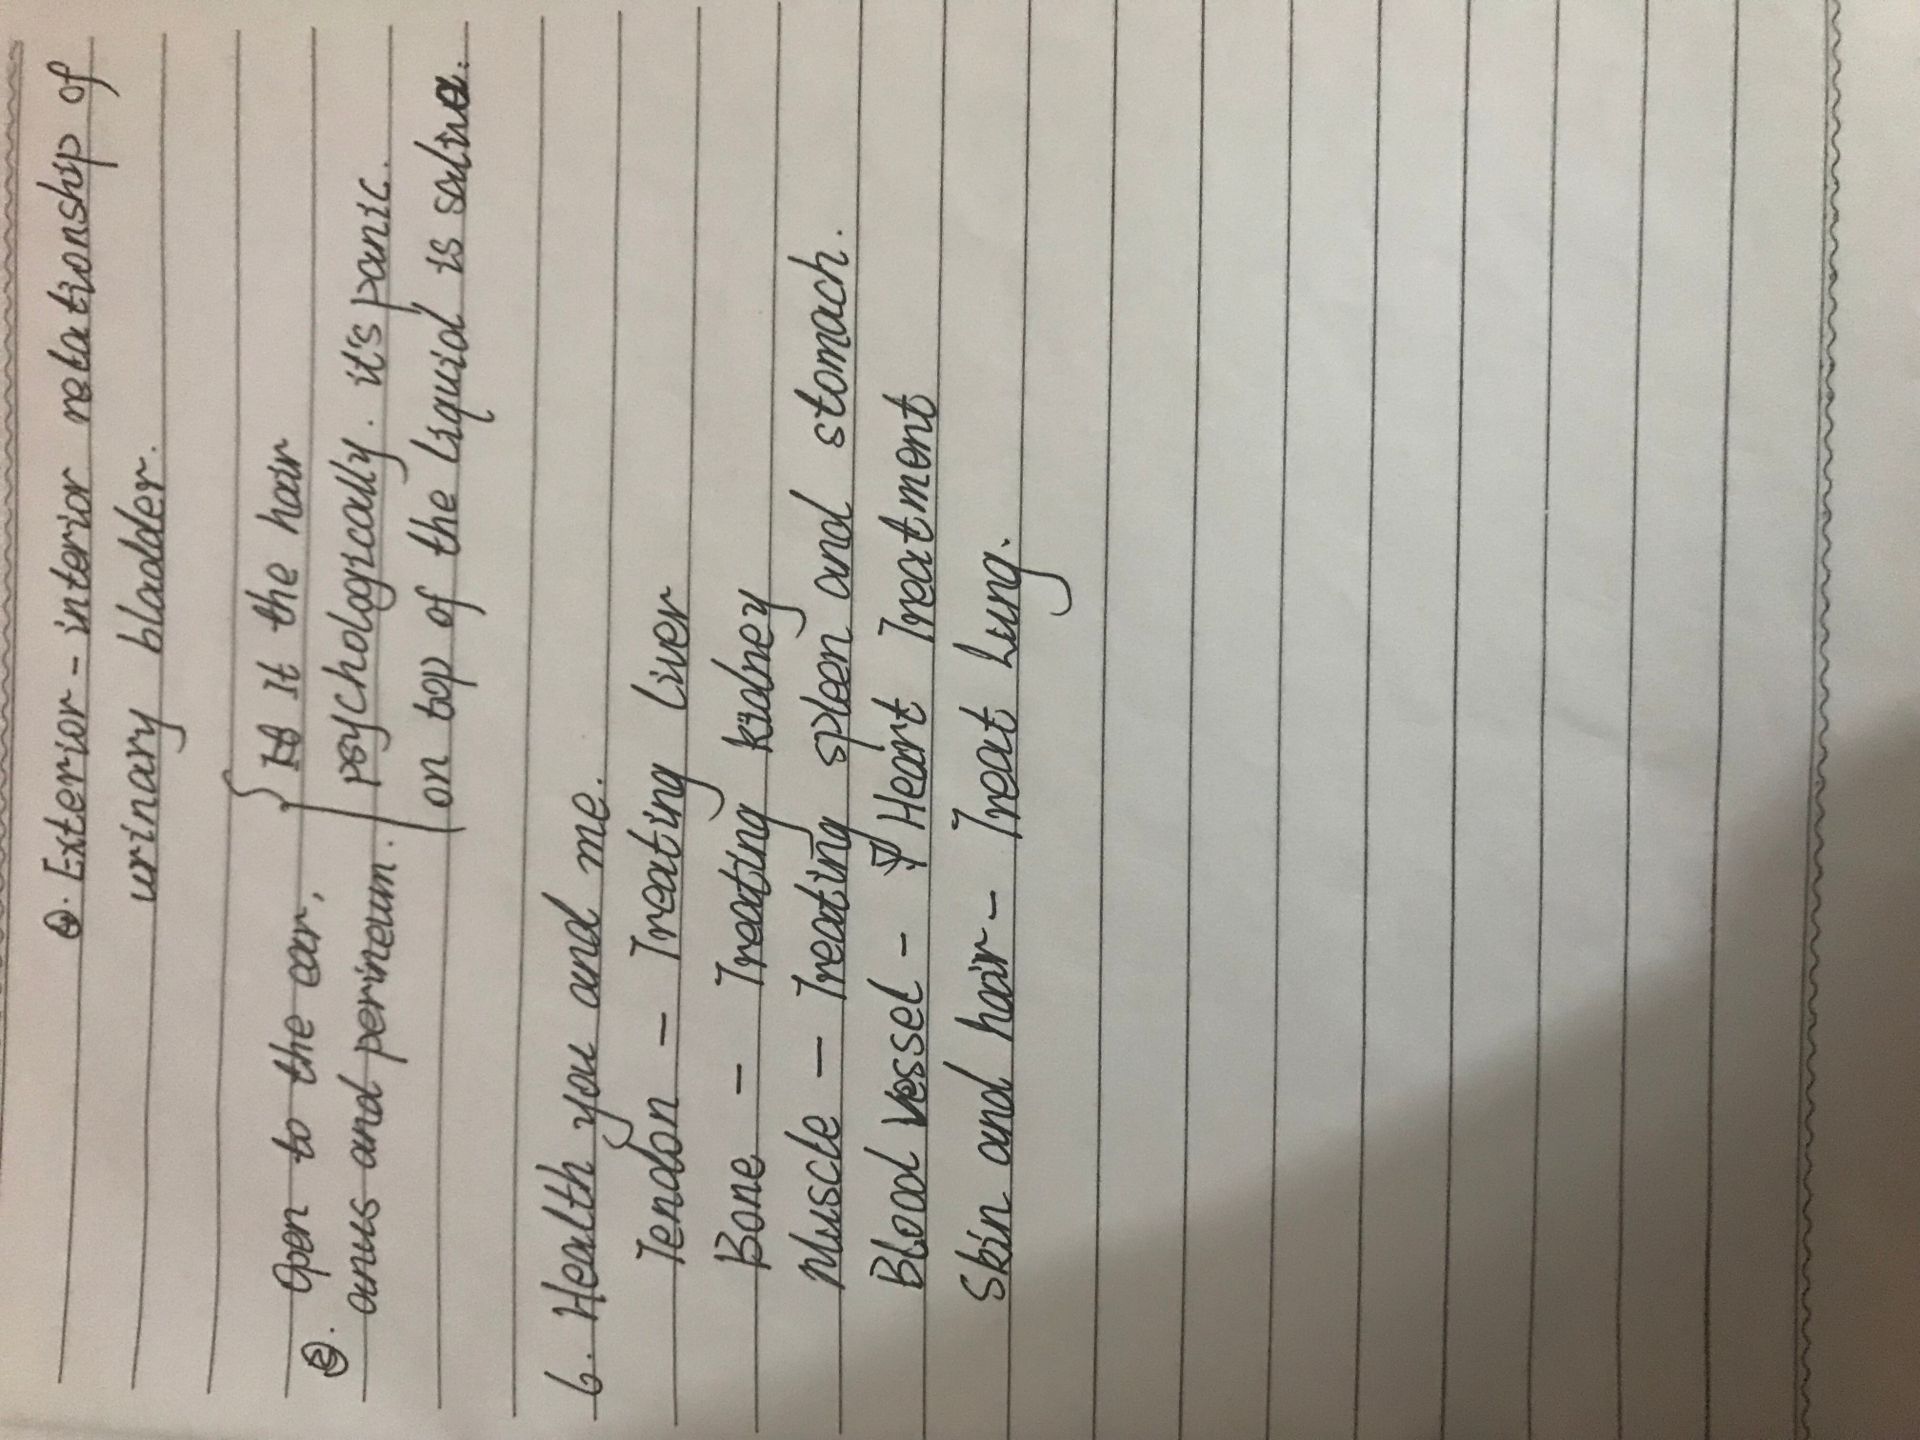 ④. Exterior - interior relationship of
urinary bladder.
⑤. Open to the ear,
anus and perineum.
It the hair
psychologically. it's panic.
on top of the liquid is saliva.
6. Health you and me.
Tendon - Treating Liver
Bone - Treating kidney
Muscle - Treating spleen and stomach.
Blood vessel - Heart Treatment
Skin and hair - Treat Lung.